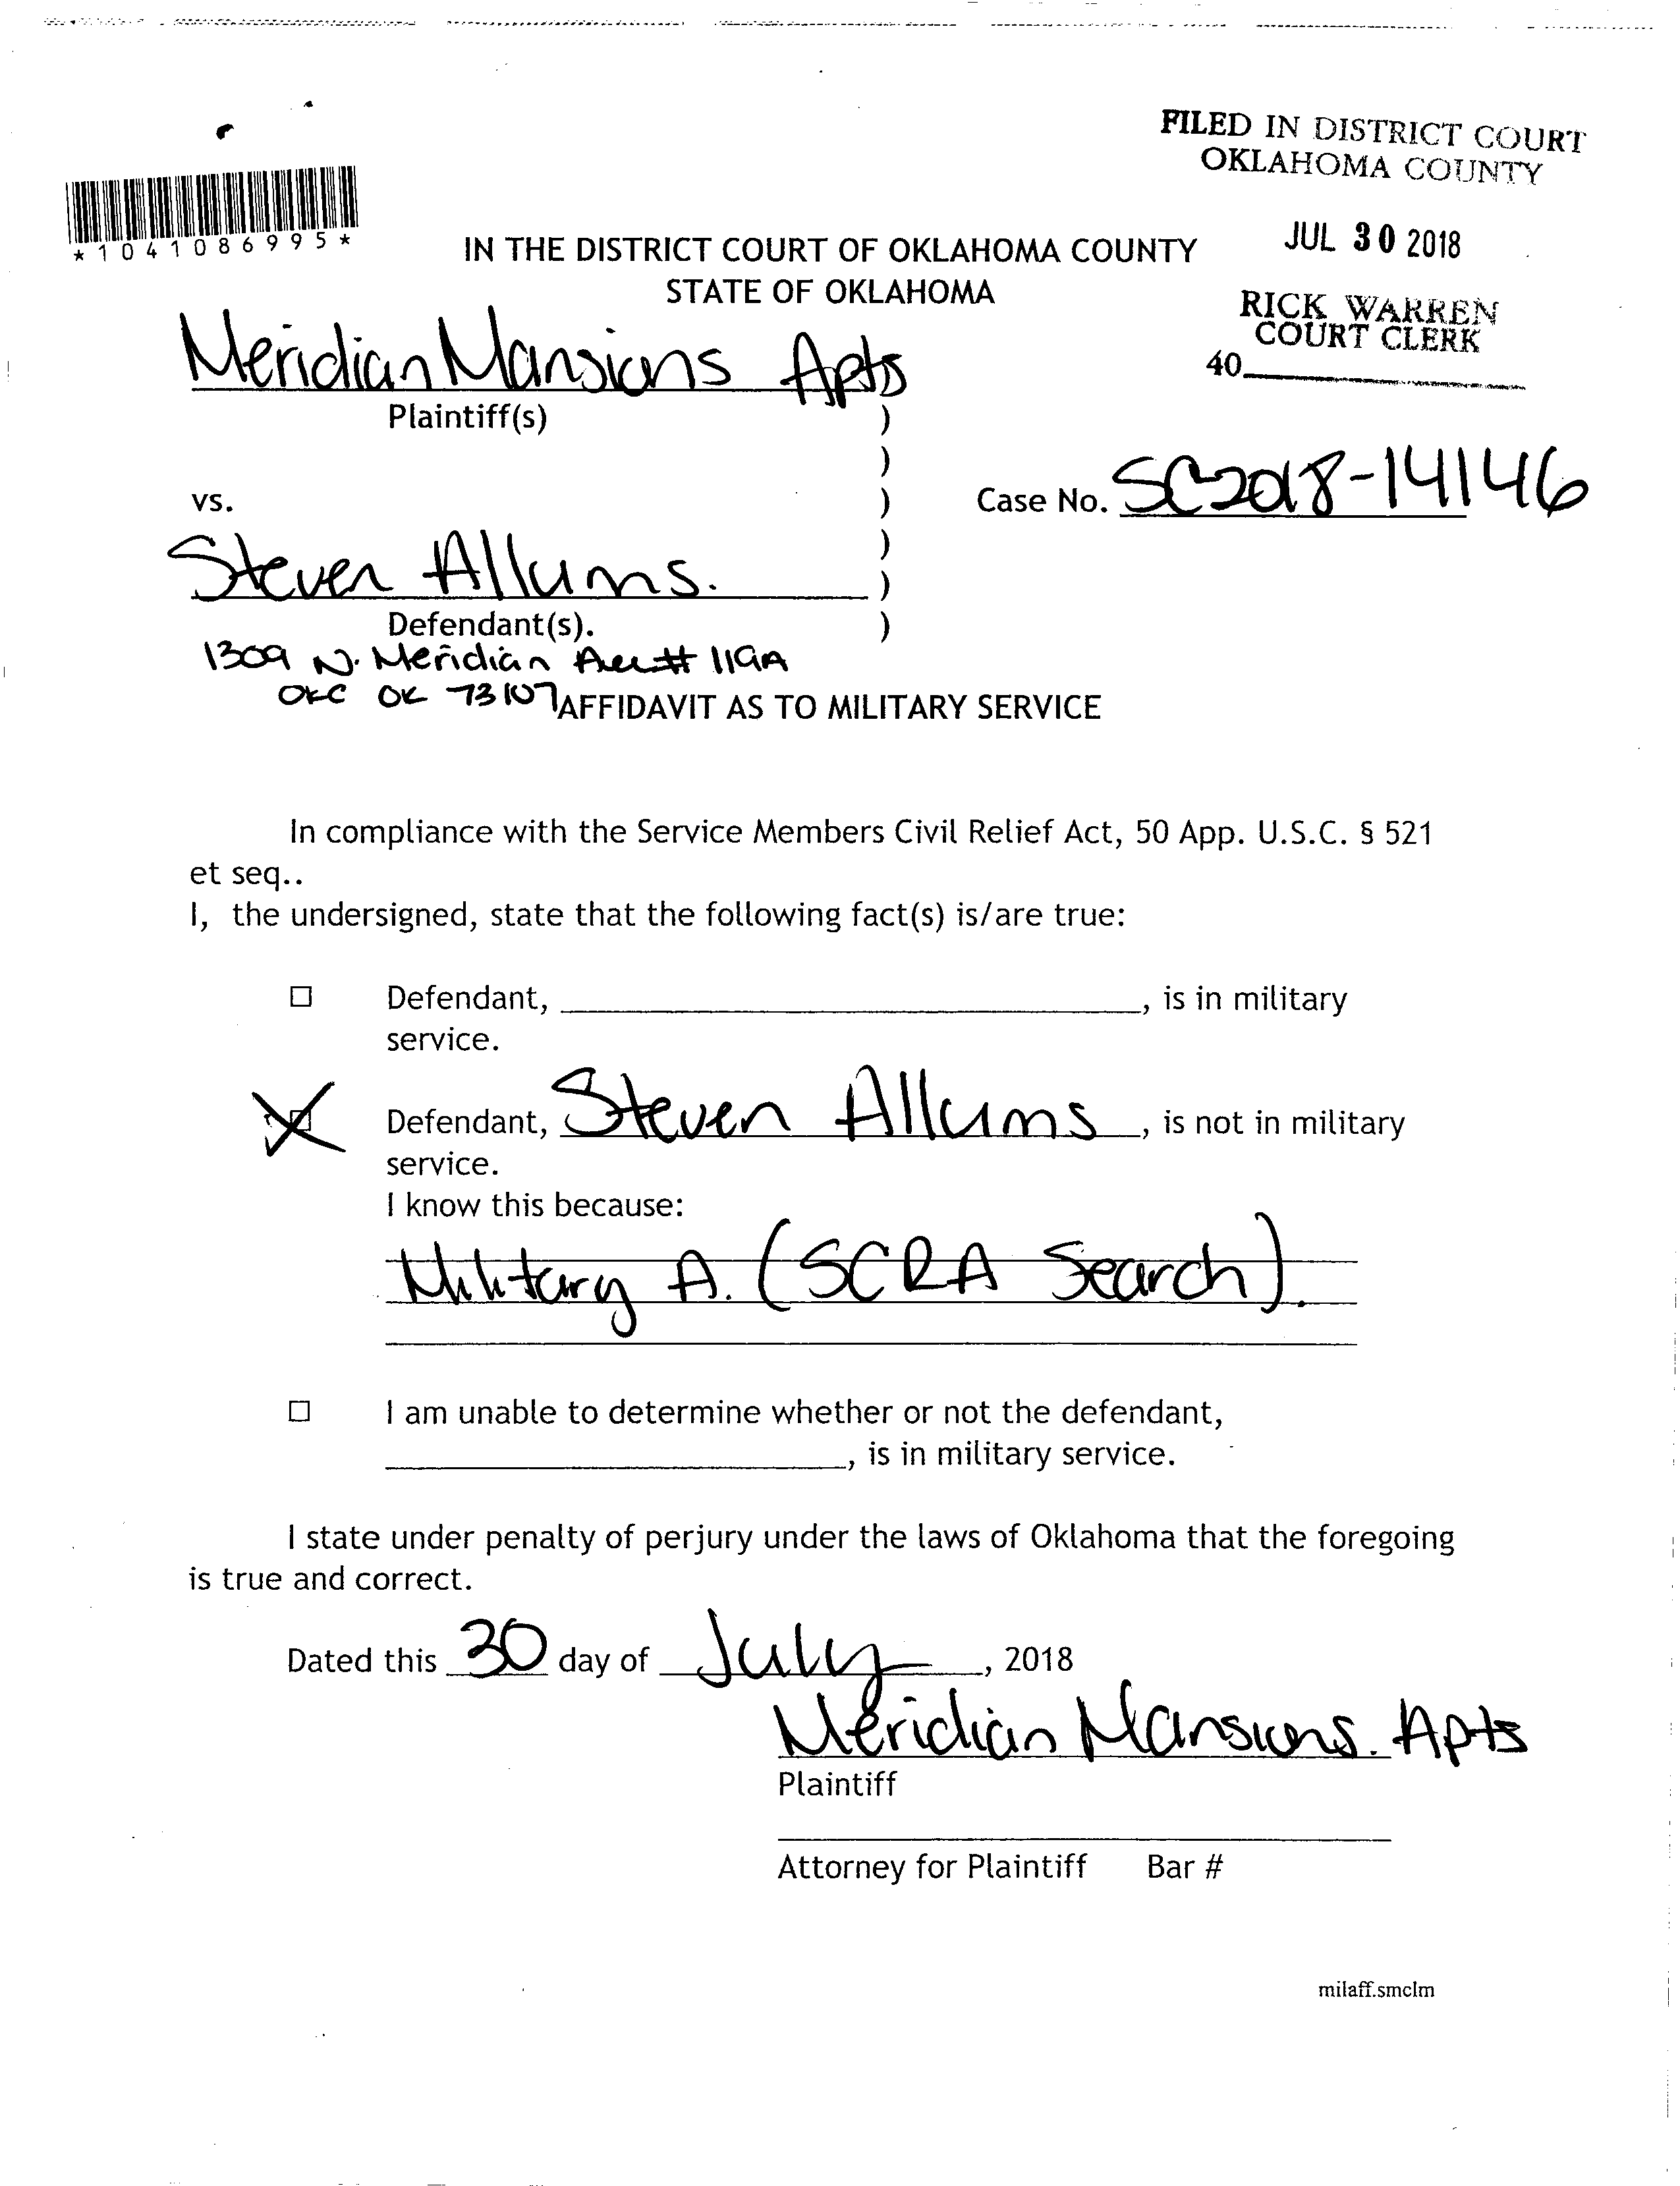 FILED IN DISTRICT COURT
OKLAHOMA COUNTY
JUL 30 2018
RICK WARREN
COURT CLERK
40
*1041086995*
IN THE DISTRICT COURT OF OKLAHOMA COUNTY
STATE OF OKLAHOMA
Meridian Mansions Apts
Plaintiff(s) )
)
vs. )
Case No. SC2018-14146
)
Steven Allums. )
Defendant(s). )
1309 N. Meridian Ave # 119A
OKC OK 73107
AFFIDAVIT AS TO MILITARY SERVICE
In compliance with the Service Members Civil Relief Act, 50 App. U.S.C. § 521
et seq..
I, the undersigned, state that the following fact(s) is/are true:
☐ Defendant, ____, is in military
service.
☒ Defendant, Steven Allums, is not in military
service.
I know this because:
Military A. (SCRA Search).
☐ I am unable to determine whether or not the defendant,
____, is in military service.
I state under penalty of perjury under the laws of Oklahoma that the foregoing
is true and correct.
Dated this 30 day of July, 2018
Meridian Mansions. Apts
Plaintiff
Attorney for Plaintiff Bar #
milaff.smclm